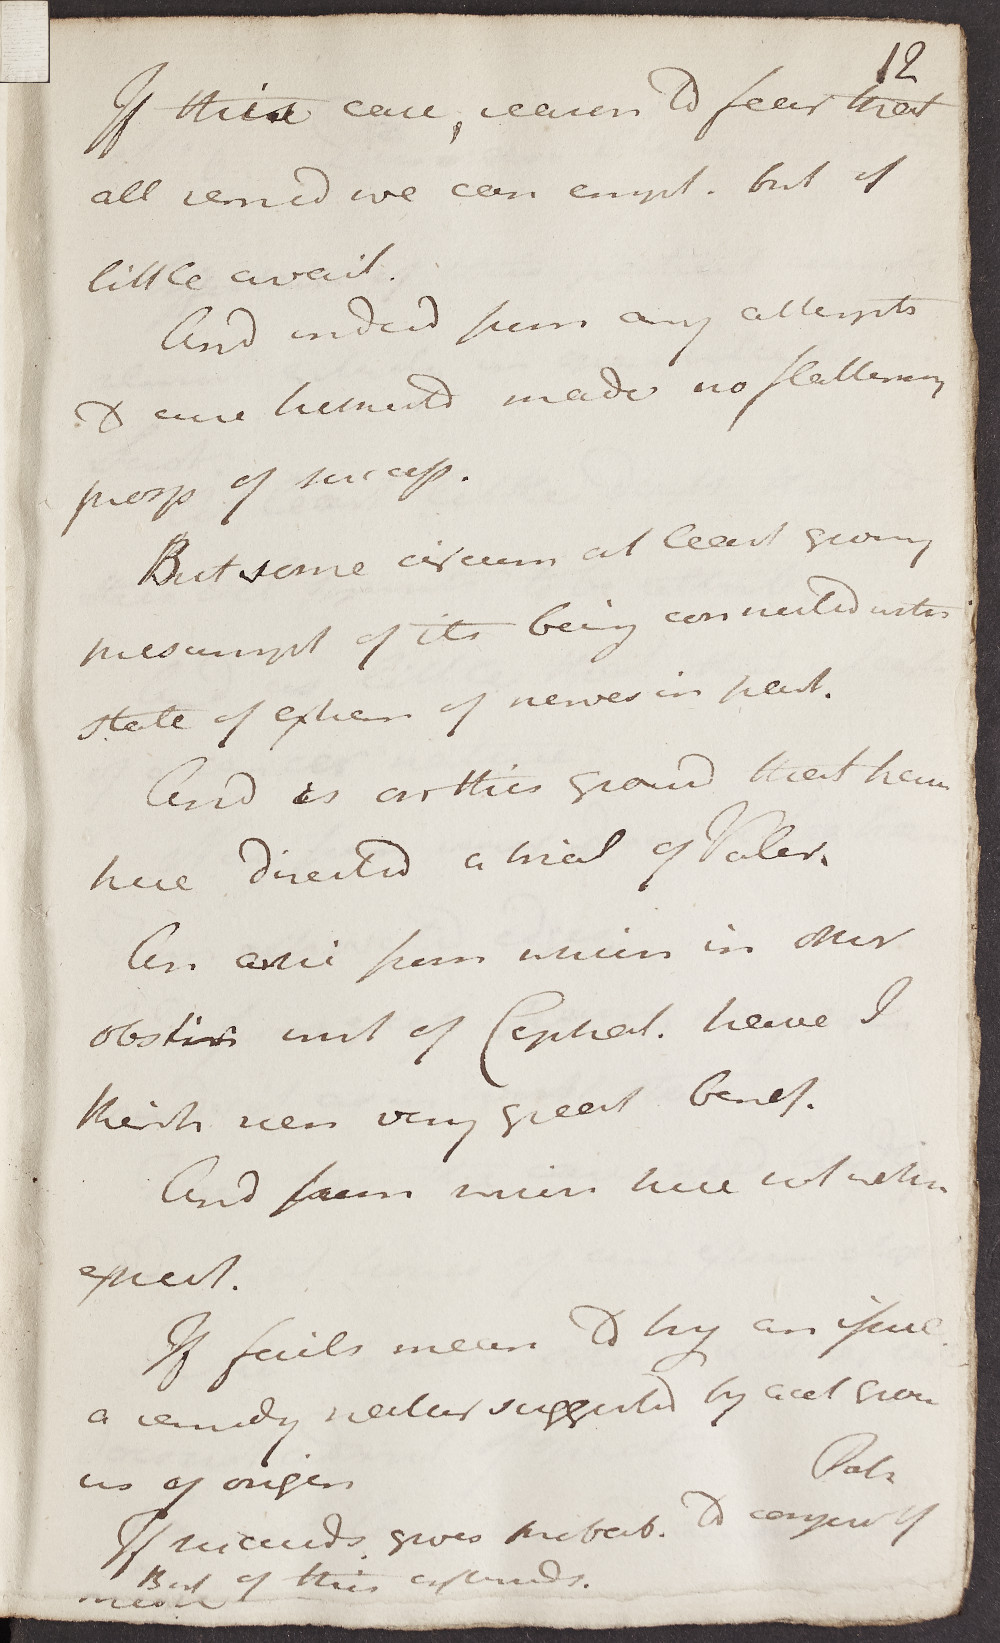 12
If this case, reason to fear that
all remed we can empl. but of
little avail.
And indeed from any attempts
to cure hitherto made no flattering
prosp of success.
But some circum at least giving
presumpt of its being connected with
state of affection of nerves in part.
And is on this ground that have
here directed a trial of Valer.
An article from which in other
obstin inst of Cephal. have I
think seen very great benef.
And from which here not without
expect.
If fails mean to try an issue
a remedy rather suggested by
us of origin
Vale
If succeeds gives probab. to
But of this afterwards.